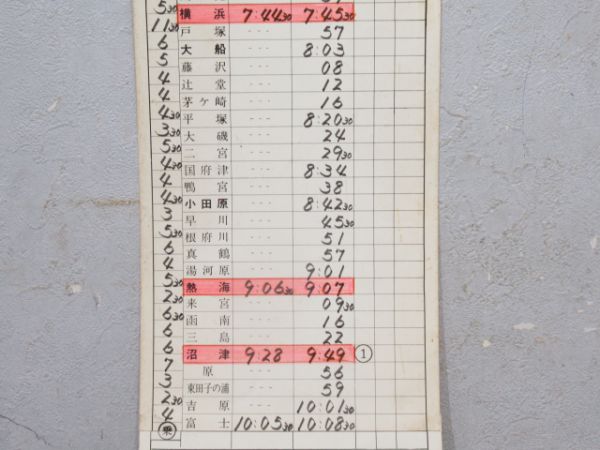 5 30 横浜 7:44 30 7:45 30
11 30 戸塚 --- 57
6 大船 --- 8:03
5 藤沢 --- 08
4 辻堂 --- 12
4 茅ヶ崎 --- 16
4 30 平塚 --- 8:20 30
3 30 大磯 --- 24
5 30 二宮 --- 29 30
4 30 国府津 --- 8:34
4 鴨宮 --- 38
4 30 小田原 --- 8:42 30
3 早川 --- 45 30
5 30 根府川 --- 51
6 真鶴 --- 57
4 湯河原 --- 9:01
5 30 熱海 9:06 30 9:07
2 30 来宮 --- 09 30
6 30 函南 --- 16
6 三島 --- 22
6 沼津 9:28 9:49 ①
7 原 --- 56
3 東田子の浦 --- 59
2 30 吉原 --- 10:01 30
4 富士 10:05 30 10:08 30
乗